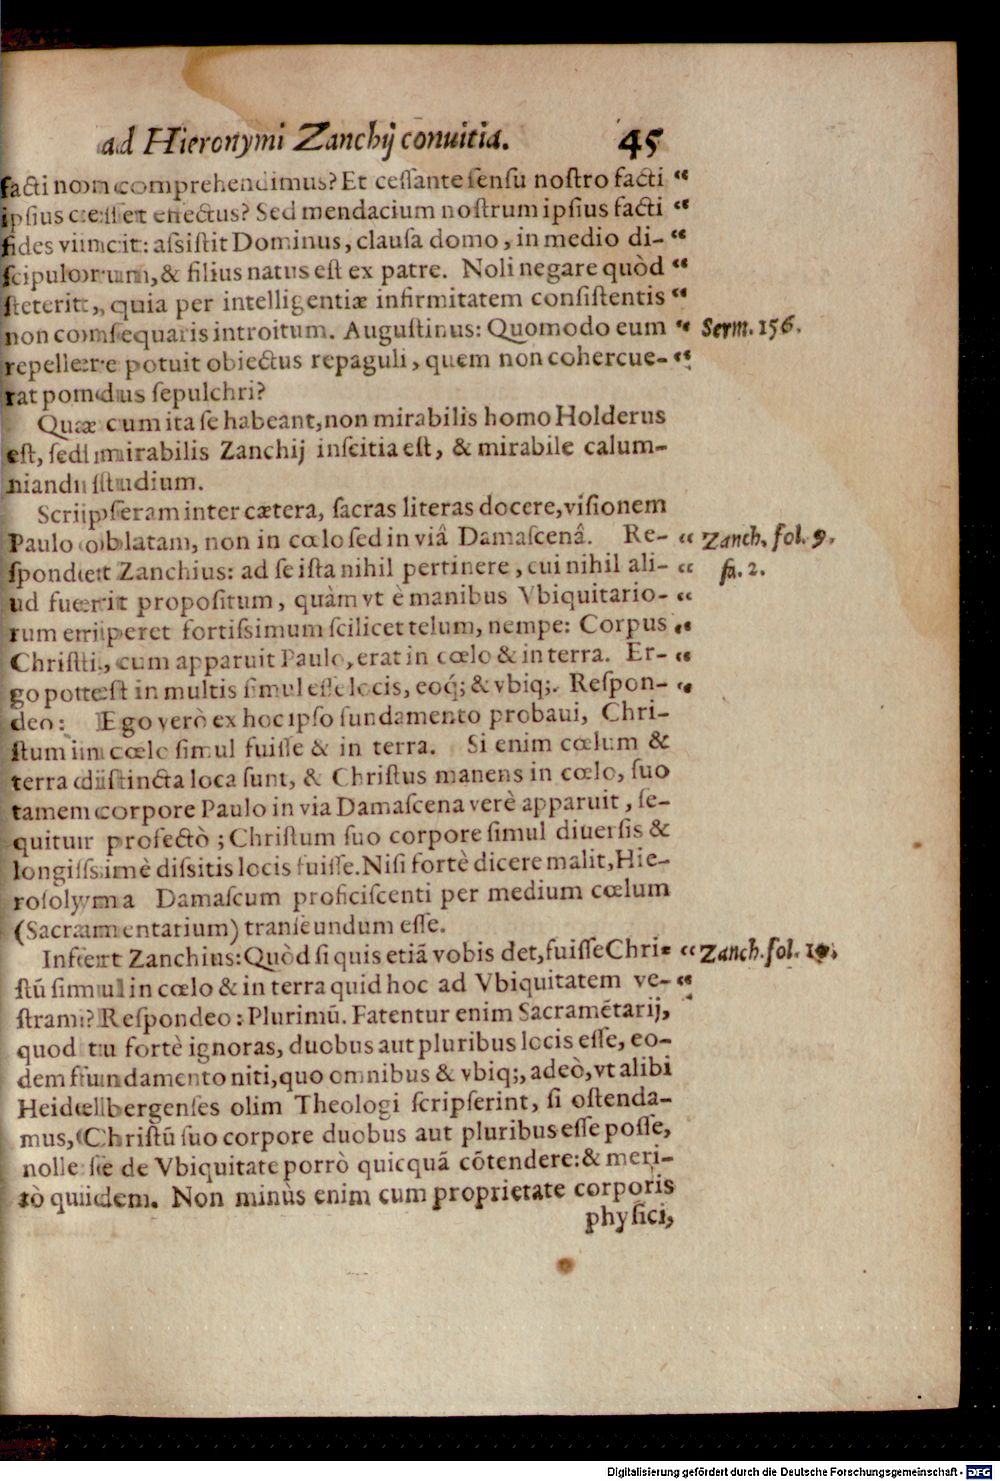 ad Hieronymi Zanchij conuitia. 45
facti non comprehendimus? Et ceſſante ſenſu noſtro facti “
ipſius ceſſet effectus? Sed mendacium noſtrum ipſius facti “
fides vincit: aſsiſtit Dominus, clauſa domo, in medio di- “
ſcipulorum, & filius natus eſt ex patre. Noli negare quòd “
ſteterit, quia per intelligentiæ infirmitatem conſiſtentis “
non conſequaris introitum. Auguſtinus: Quomodo eum “ Serm. 156.
repellere potuit obiectus repaguli, quem non cohercue- “
rat pondus ſepulchri?
Quæ cum ita ſe habeant, non mirabilis homo Holderus
eſt, ſed mirabilis Zanchij inſcitia eſt, & mirabile calum-
niandi ſtudium.
Scripſeram inter cætera, ſacras literas docere, viſionem
Paulo oblatam, non in cœlo ſed in viâ Damaſcenâ. Re- “ Zanch. fol. 9.
ſpondet Zanchius: ad ſe iſta nihil pertinere, cui nihil ali- “ fa. 2.
ud fuerit propoſitum, quàm vt è manibus Vbiquitario- “
rum eriperet fortiſsimum ſcilicet telum, nempe: Corpus “
Chriſti, cum apparuit Paulo, erat in cœlo & in terra. Er- “
go poteſt in multis ſimul eſſe locis, eoq́; & vbiq;. Reſpon- “
deo: Ego verò ex hoc ipſo fundamento probaui, Chri-
ſtum in cœlo ſimul fuiſſe & in terra. Si enim cœlum &
terra diſtincta loca ſunt, & Chriſtus manens in cœlo, ſuo
tamen corpore Paulo in via Damaſcena verè apparuit, ſe-
quitur profectò; Chriſtum ſuo corpore ſimul diuerſis &
longiſsimè diſsitis locis fuiſſe. Niſi fortè dicere malit, Hie-
roſolyma Damaſcum proficiſcenti per medium cœlum
(Sacramentarium) tranſeundum eſſe.
Infert Zanchius: Quòd ſi quis etiã vobis det, fuiſſe Chri- “ Zanch. fol. 10.
ſtũ ſimul in cœlo & in terra quid hoc ad Vbiquitatem ve- “
ſtram? Reſpondeo: Plurimũ. Fatentur enim Sacramẽtarij,
quod tu fortè ignoras, duobus aut pluribus locis eſſe, eo-
dem fundamento niti, quo omnibus & vbiq;, adeò, vt alibi
Heidelbergenſes olim Theologi ſcripſerint, ſi oſtenda-
mus, Chriſtũ ſuo corpore duobus aut pluribus eſſe poſſe,
nolle ſe de Vbiquitate porrò quicquã cõtendere: & meri-
tò quidem. Non minùs enim cum proprietate corporis
phyſici,
Digitalisierung gefördert durch die Deutsche Forschungsgemeinschaft - DFG